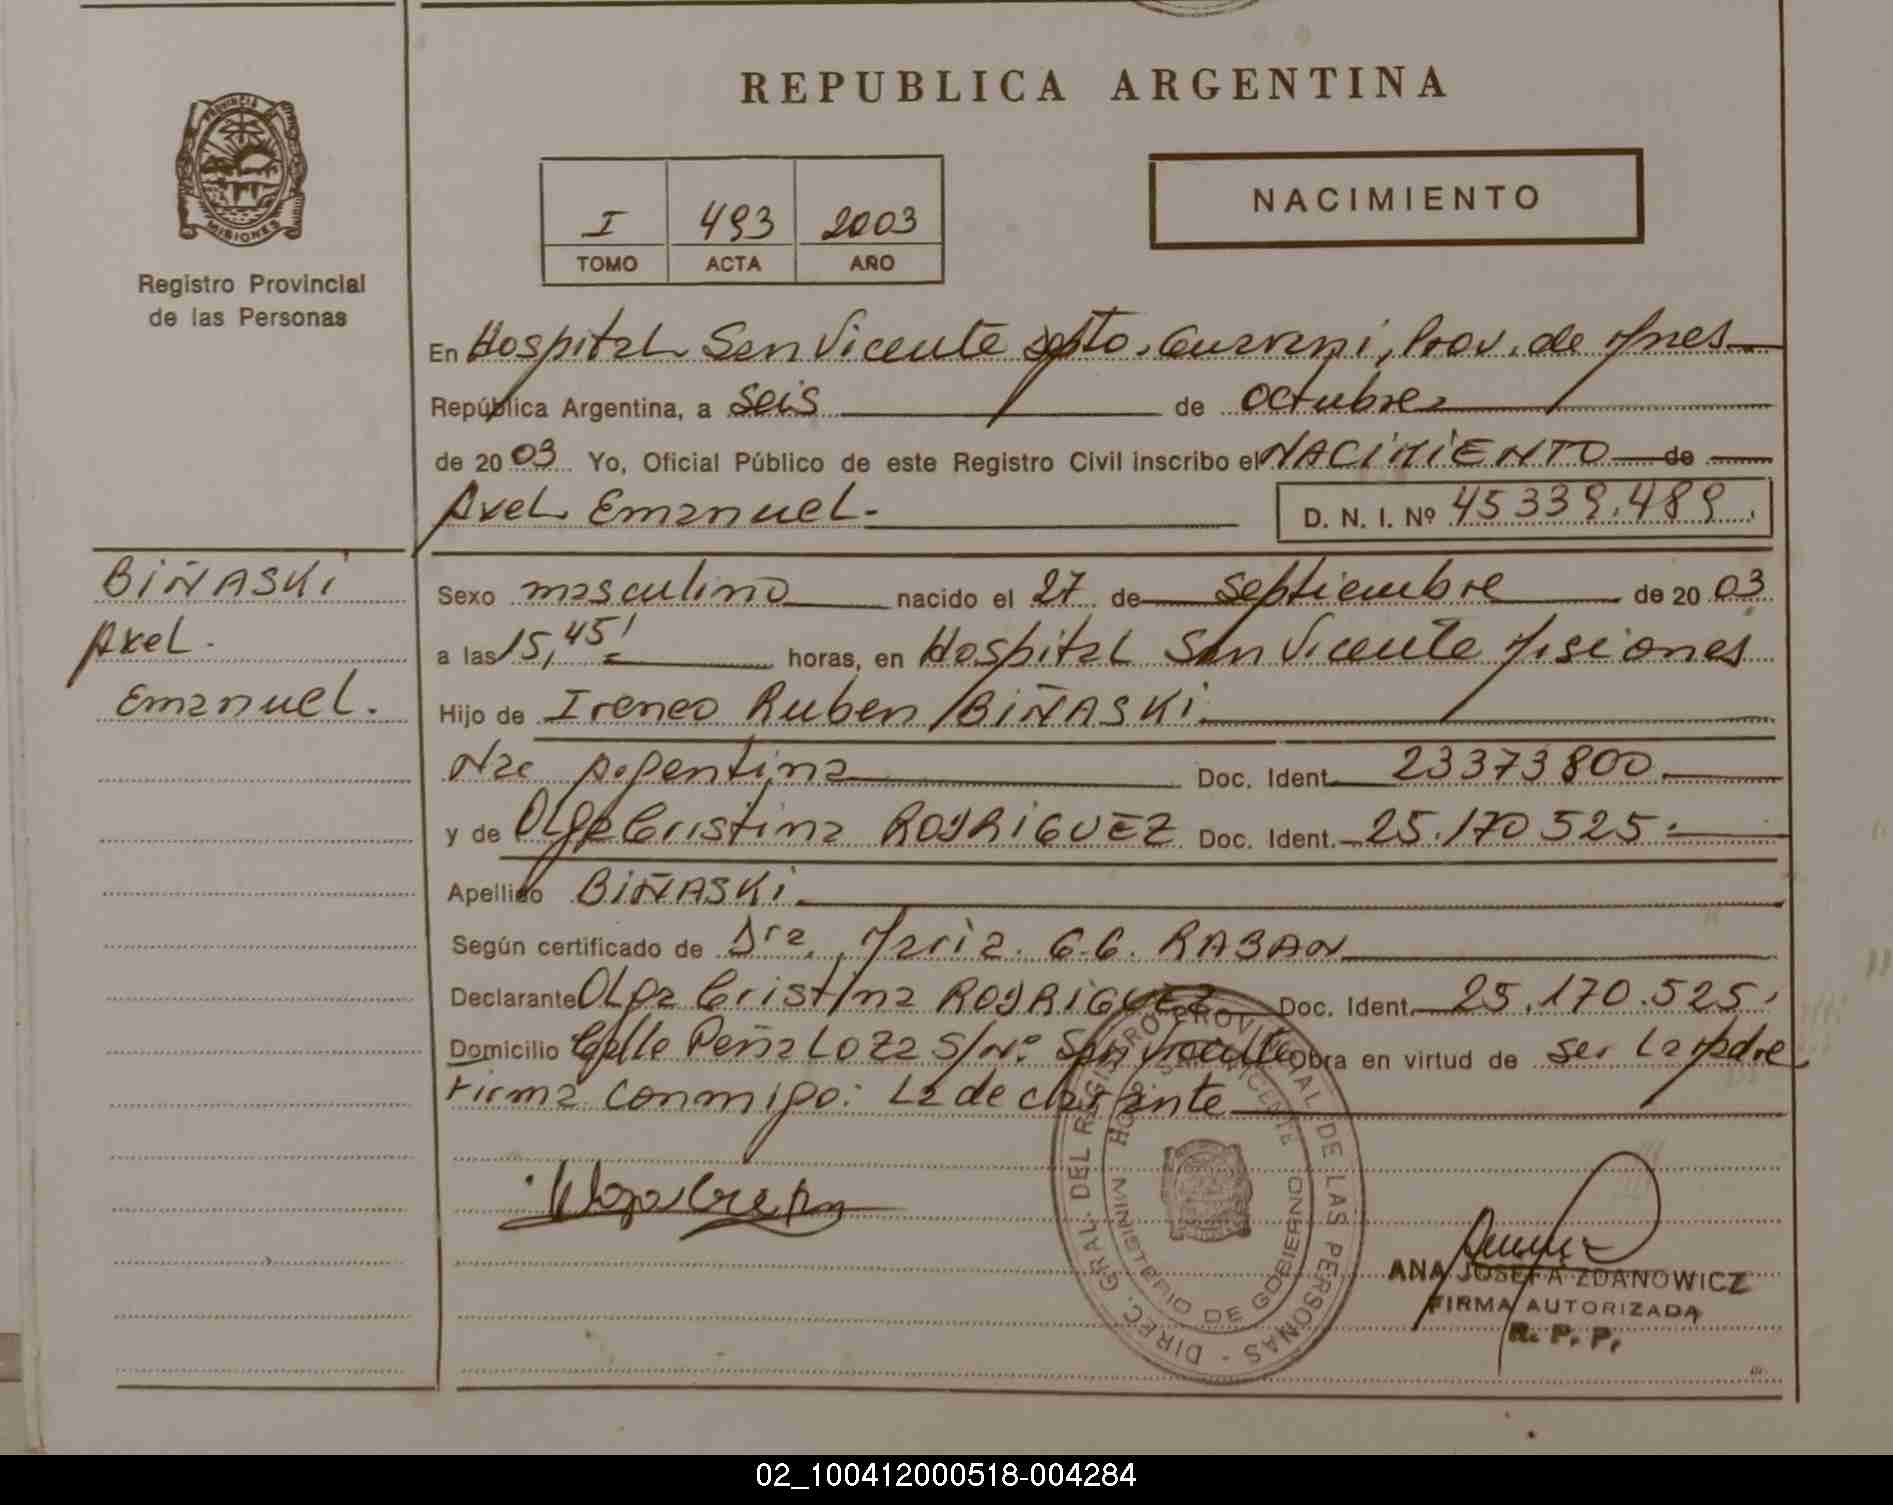 REPUBLICA ARGENTINA
PROVINCIA DE
MISIONES
Registro Provincial
de las Personas
I 493 2003
TOMO ACTA AÑO
NACIMIENTO
En Hospital San Vicente Dpto. Guarani, Prov. de Mnes
República Argentina, a seis de octubre
de 2003 Yo, Oficial Público de este Registro Civil inscribo el NACIMIENTO de
Axel Emanuel.
D. N. I. Nº 45339.489.
BIÑASKI
Axel.
Emanuel.
Sexo masculino nacido el 27 de Septiembre de 2003
a las 15,45' horas, en Hospital San Vicente Misiones
Hijo de Ireneo Ruben BIÑASKI
Nac Argentina Doc. Ident. 23373800
y de Olga Cristina RODRIGUEZ Doc. Ident. 25.170525.
Apellido BIÑASKI
Según certificado de Dra. Maria G.G. RABAN
Declarante OLga Cristina RODRIGUEZ Doc. Ident. 25.170.525.
Domicilio Calle Peñaloza S/Nº San Vicente Obra en virtud de ser La Madre
Firma conmigo: La declarante
DIREC. GRAL. DEL REGISTRO PROVINCIAL DE LAS PERSONAS -
MINISTERIO DE GOBIERNO
ANA JOSEFA ZDANOWICZ
FIRMA AUTORIZADA
R. P. P.
02_100412000518-004284